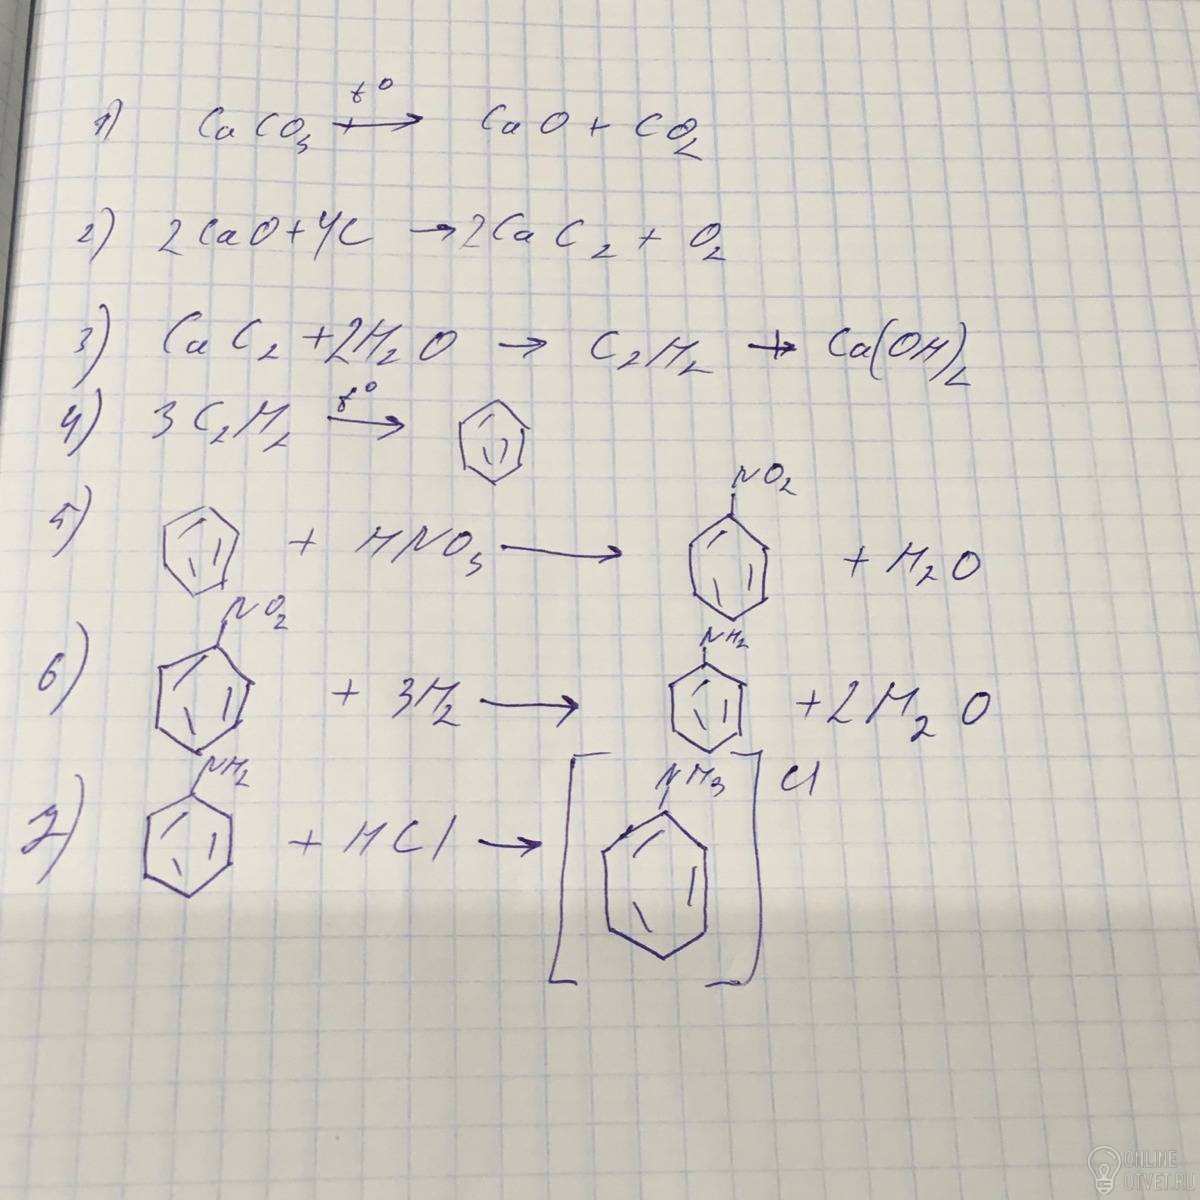 1) CaCO₃ —t°→ CaO + CO₂
2) 2CaO + 4C → 2CaC₂ + O₂
3) CaC₂ + 2H₂O → C₂H₂ + Ca(OH)₂
4) 3C₂H₂ —t°→
5) + HNO₃ → NO₂ + H₂O
6) NO₂ + 3H₂ → NH₂ + 2H₂O
7) NH₂ + HCl → [NH₃] Cl
ONLINE
OTVET.RU